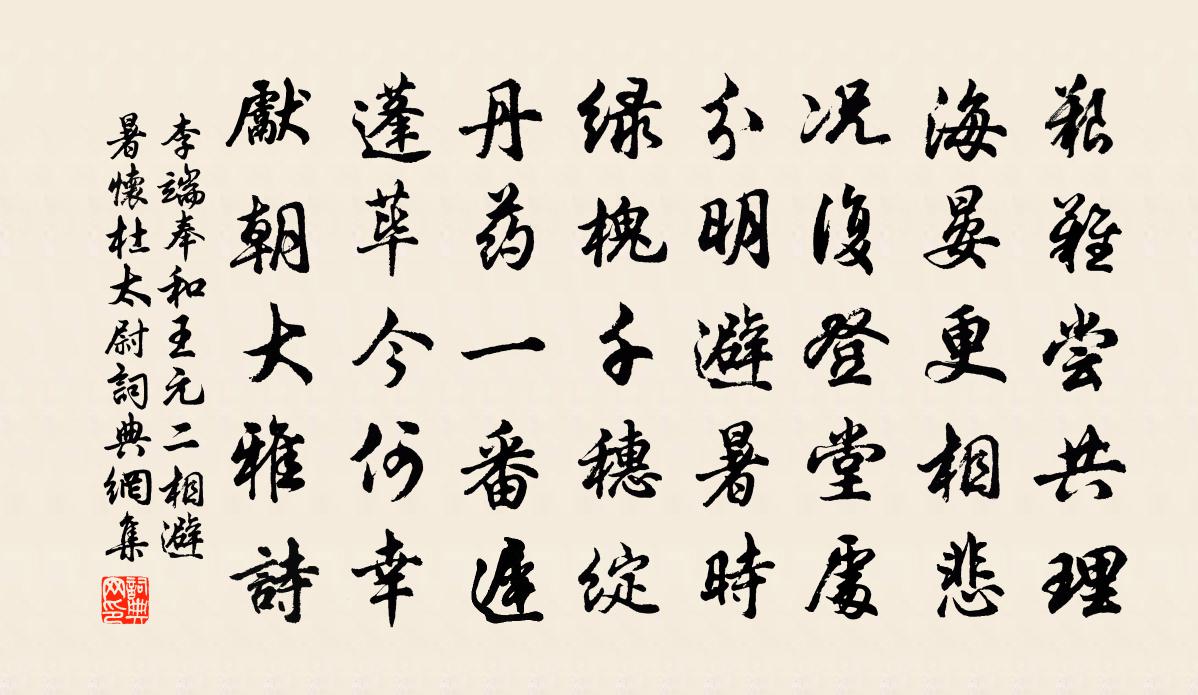 艱難嘗共理
海晏更相悲
况復登堂處
分明避暑時
绿槐千穗綻
丹药一番遲
蓬蓽今何幸
獻朝大雅詩
李端奉和王元二相避
暑懷杜太尉詞典網集
詞典網印